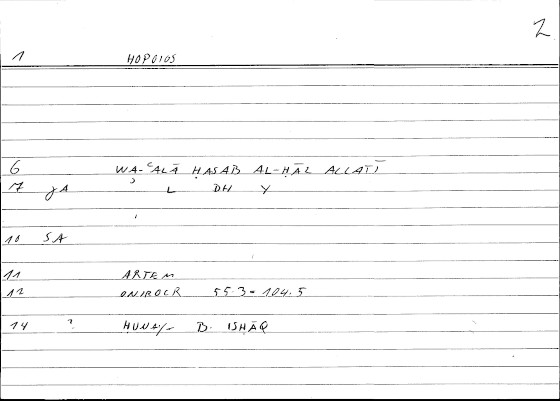 2
1 HOPOIOS
6 WA-ʿALĀ ḤASAB AL-ḤĀL ALLATĪ
7 JA ʾ L DH Y
10 SA
11 ARTEM
12 ONIROCR 55.3 = 104.5
14 ? ḤUNAYN B. ISḤĀQ